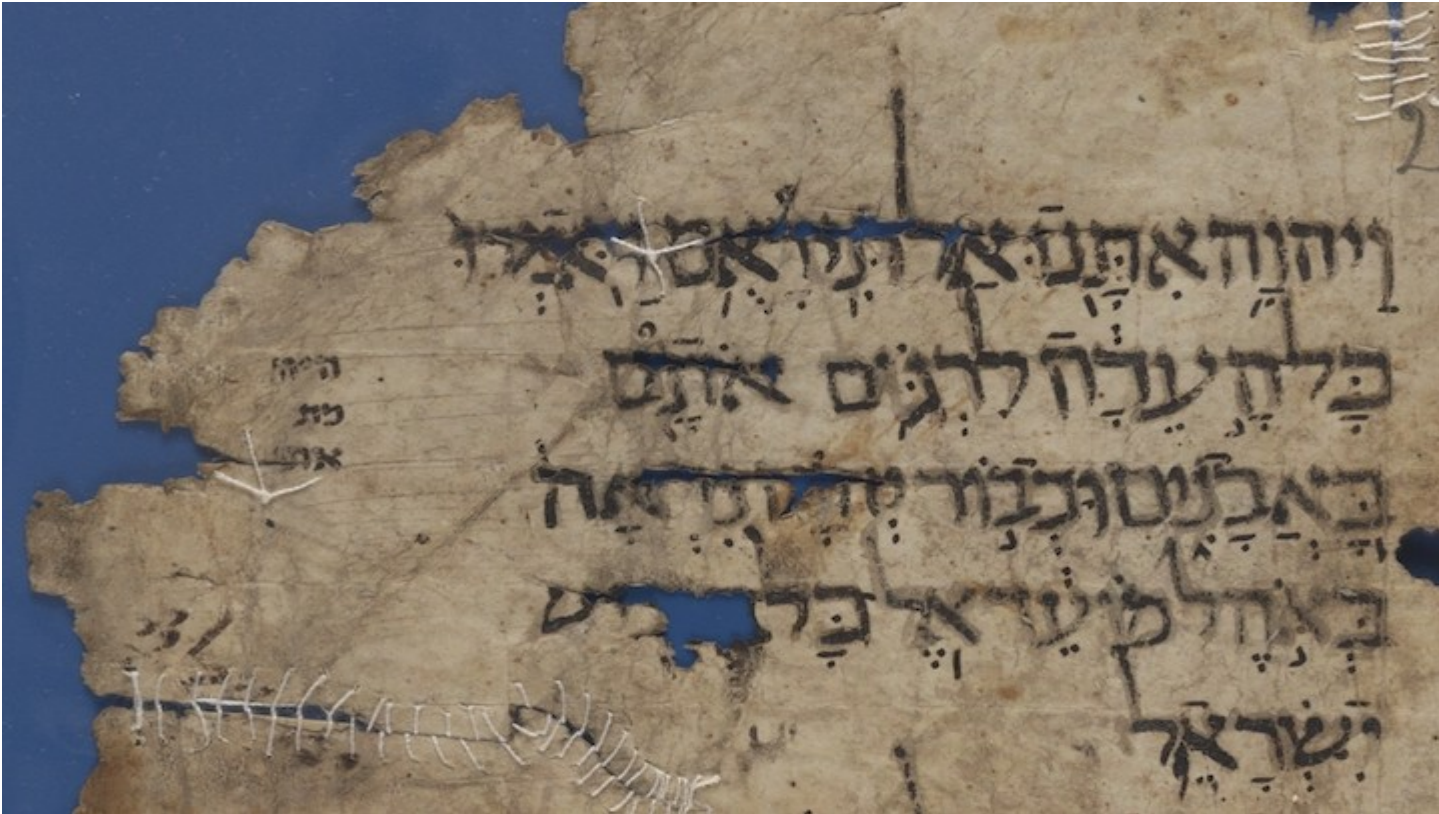 2
וַיהוָה אִתָּנוּ אַל תִּירָאֻם וַיֹּאמְרוּ
כָּל הָעֵדָה לִרְגּוֹם אֹתָם
בָּאֲבָנִים וּכְבוֹד יְהוָה נִרְאָה
בְּאֹהֶל מוֹעֵד אֶל כָּל
יִשְׂרָאֵל